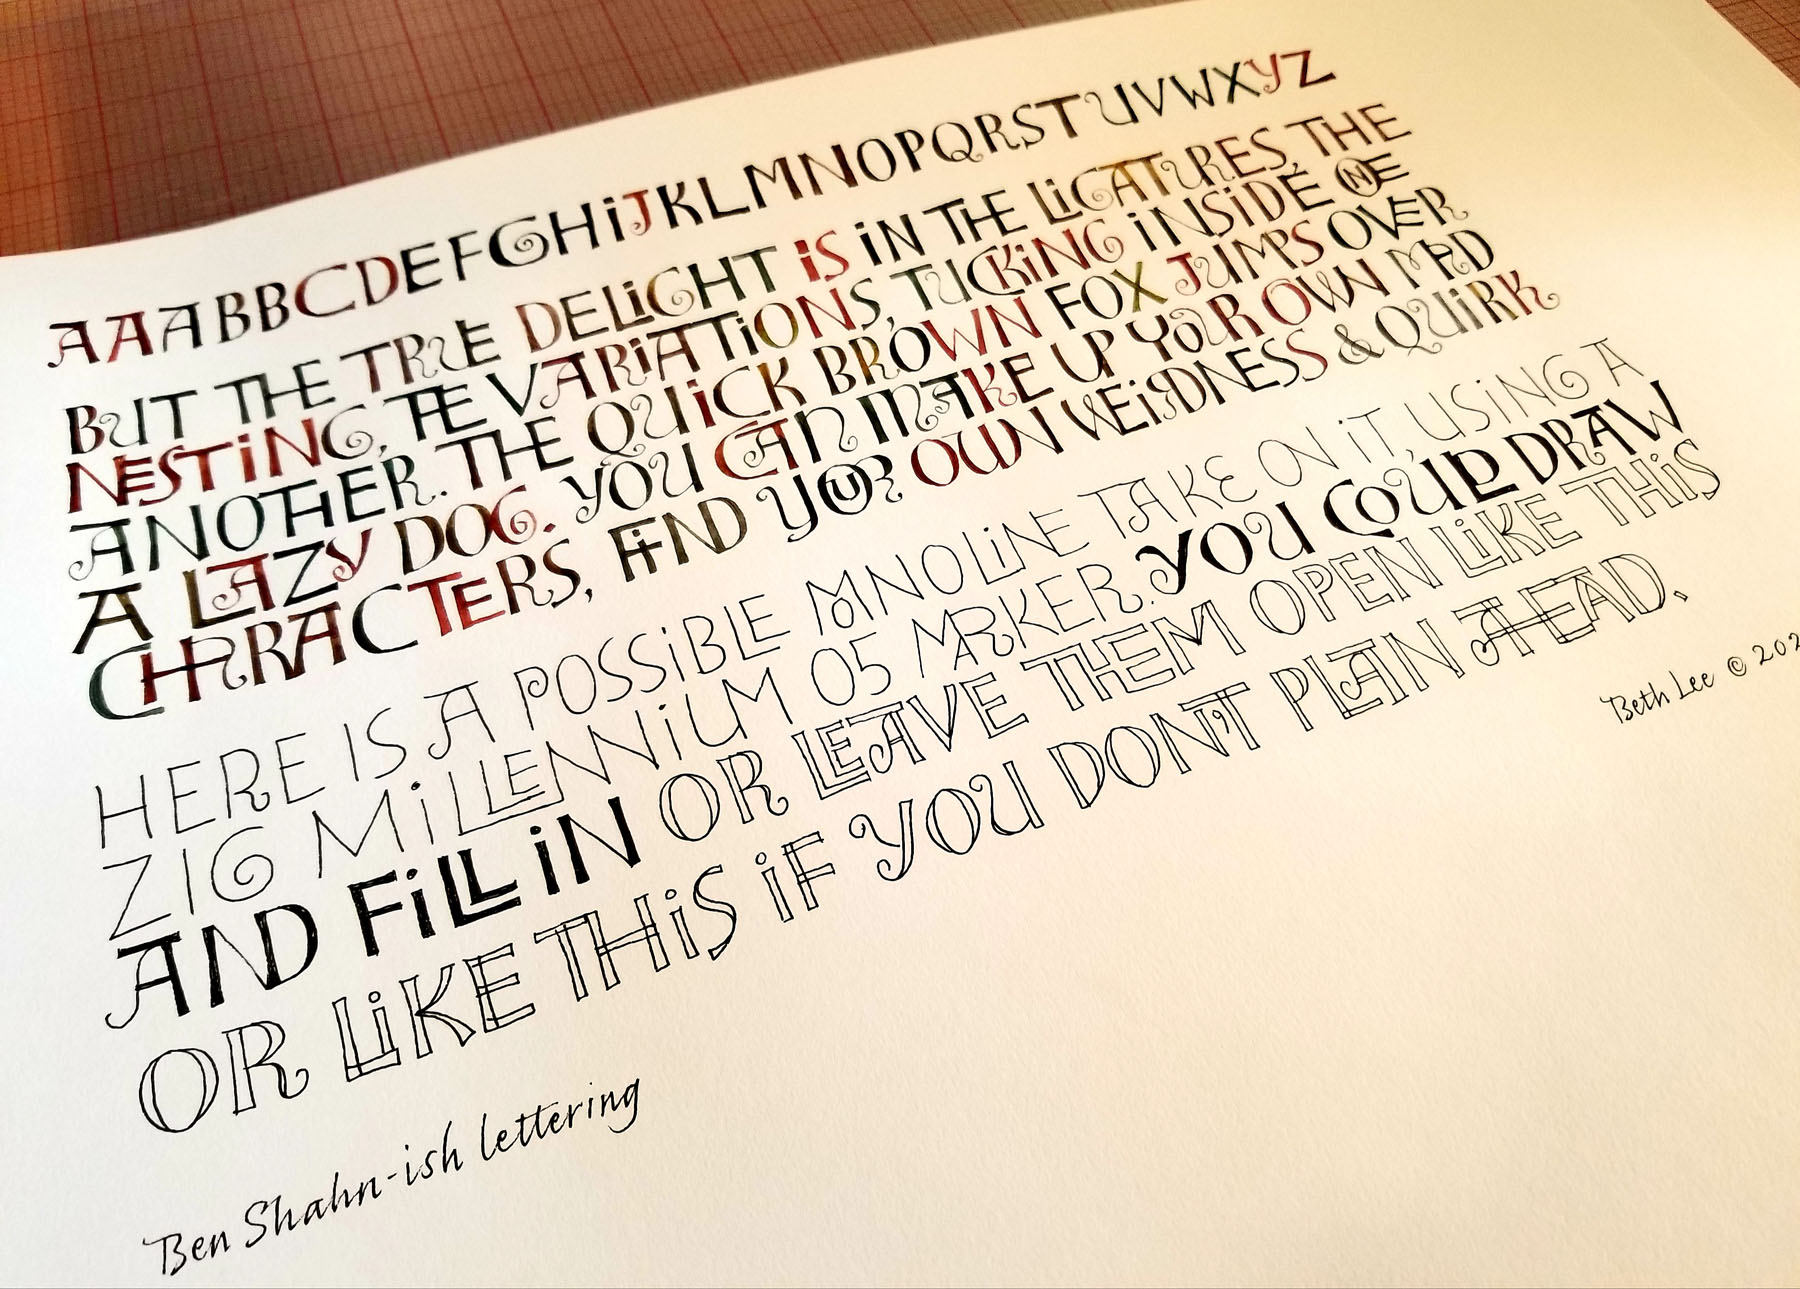 AAABBCDEFGHiJKLMNOPQRSTUVWXYZ
BUT THE TRUE DELiGHT iS iN THE LiGATURES, THE
NESTiNG, THE VARiATiONS, TUCKiNG iNSiDE ONE
ANOTHER. THE QUiCK BROWN FOX JUMPS OVER
A LAZY DOG. YOU CAN MAKE UP YOUR OWN MAD
CHARACTERS, FiND YOUR OWN WEiRDNESS & QUiRK
HERE IS A POSSiBLE MONOLiNE TAKE ON iT, USiNG A
ZIG MiLLENNiUM 05 MARKER. YOU COULD DRAW
AND FiLL iN OR LEAVE THEM OPEN LiKE THiS
OR LiKE THiS iF YOU DON'T PLAN AHEAD.
Beth Lee © 202
Ben Shahn-ish lettering